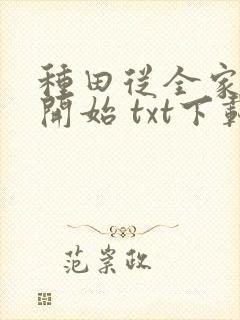 種田從全家
開始 txt下載
范崇政